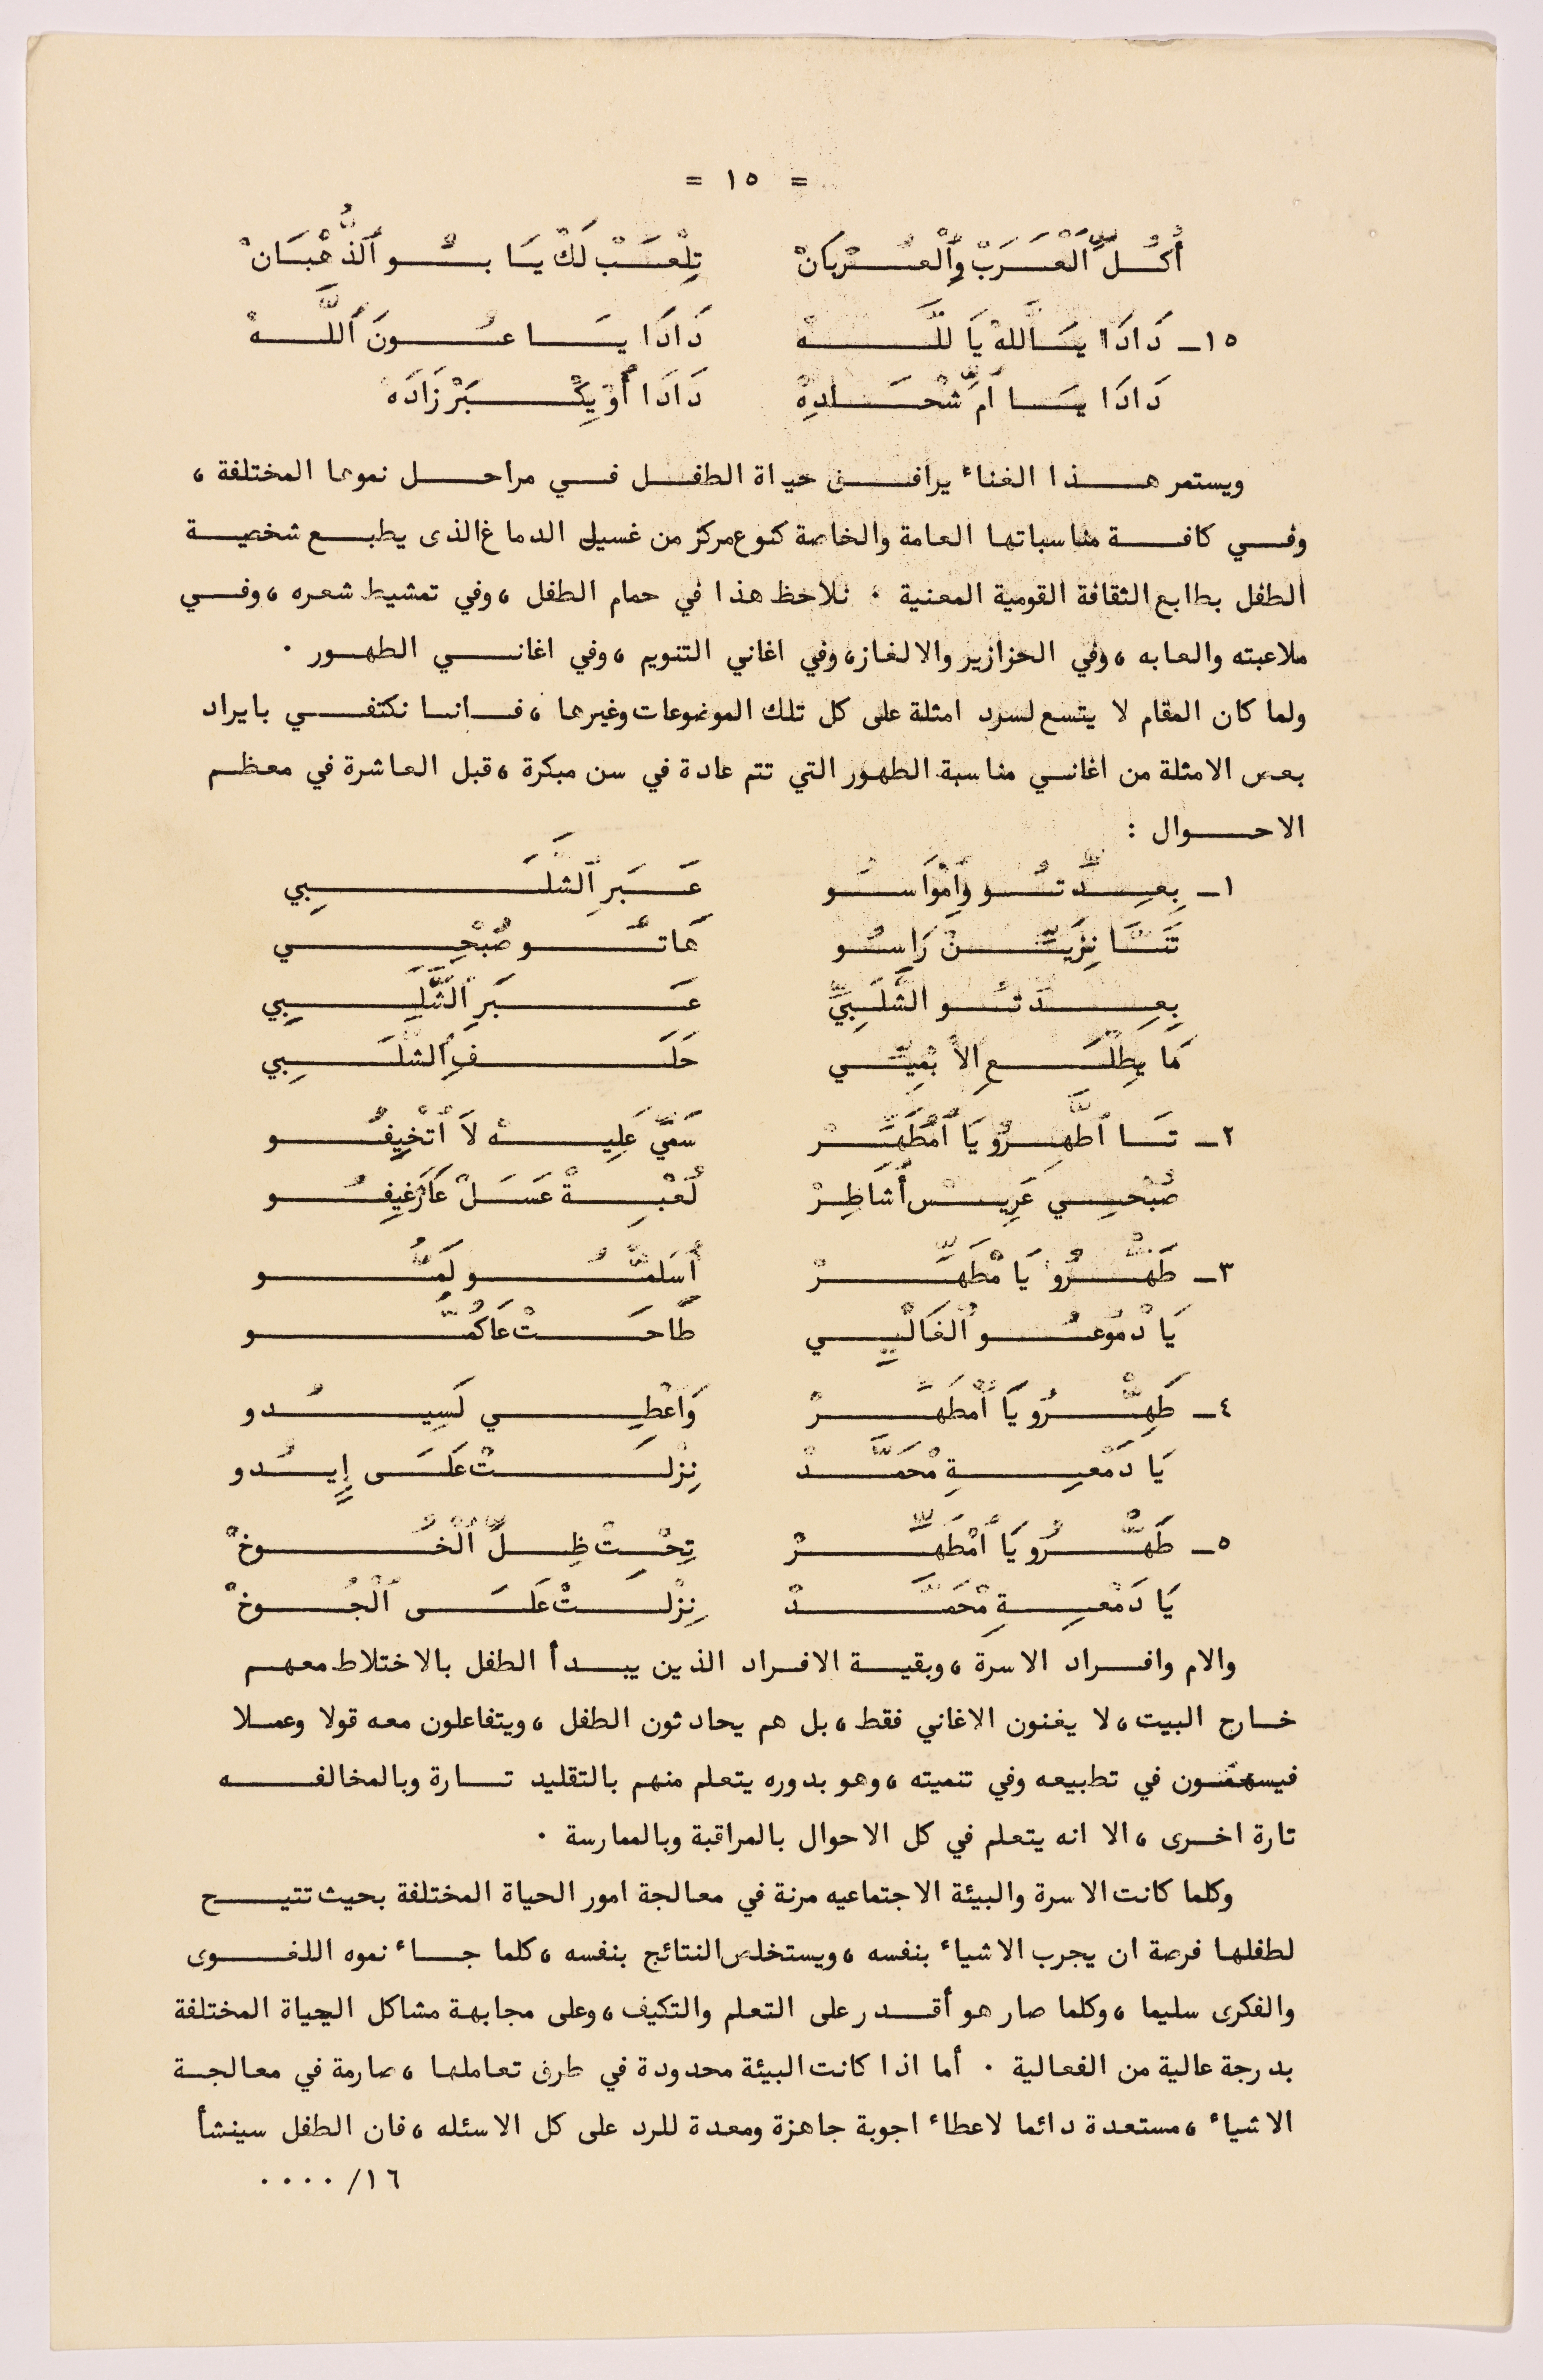 = ١٥ =
أُكُلَّ ٱلْعَرَبْ وِٱلْعُرْبَانْ تِلْعَبْ لَكْ يَا بُو ٱلذُّهْبَانْ
١٥ـ دَادَا يَاٱللهْ يَا للَّهْ دَادَا يَا عُونَ ٱللَّهْ
دَادَا يَا امّ شْحَادِةْ دَادَا أُوْ يِكْبَرْ زَادَهْ
ويستمر هذا الغناء يرافق حياة الطفل في مراحل نموها المختلفة ،
وفي كافة مناسباتها العامة والخاصة كنوع مركز من غسيل الدماغ الذى يطبع شخصية
الطفل بطابع الثقافة القومية المعنية ٠ نلاحظ هذا في حمام الطفل ، وفي تمشيط شعره ، وفي
ملاعبته والعابه ، وفي الحزازير والالغاز، وفي اغاني التنويم ، وفي اغاني الطهور ٠
ولما كان المقام لا يتسع لسرد امثلة على كل تلك الموضوعات وغيرها ، فاننا نكتفي بايراد
بعض الامثلة من اغاني مناسبة الطهور التي تتم عادة في سن مبكرة ، قبل العاشرة في معظم
الاحوال :
١ـ بِعِدِّتُو وِامْوَاسُو عَبَرِ ٱلشَّلَبِي
تَنَّا نِزَيِّنْ رَاسُو هَاتُو صُبْحِي
بِعِدِّتُو الشَّلَبِيِّ عَبَرِ ٱلشَّلَبِي
مَا يِطْلَعِ الاَّ بْمِيِّي حَلَفِ ٱلشَّلَبِي
٢ـ تَا ٱطَّهِرُو يَا ٱمْطَهِّرْ سَمِّي عَلِيهْ لاَ ٱتْخِيفُو
صُبْحِي عَرِيسْ أُشَاطِرْ لُعْبِةْ عَسَلْ عَارْغِيفُو
٣ـ طَهِّرُو يَا مْطَهِّرْ أُسَلمُّو لَمُّو
يَا دْمُوعُو ٱلْغَالْيِي طَاحَتْ عَاكُمُّو
٤ـ طَهِّرُو يَا ٱمْطَهِّرْ وَاعْطِي لَسِيدُو
يَا دَمْعِةِ مْحَمَّدْ نِزْلَتْ عَلَى إِيدُو
٥ـ طَهِّرُو يَا ٱمْطَهِّرْ تِحْتْ ظِلِّ ٱلْخُوخْ
يَا دَمْعِةِ مْحَمَّدْ نِزْلَتْ عَلَى ٱلْجُوخْ
والام وافراد الاسرة ، وبقية الافراد الذين يبدأ الطفل بالاختلاط معهم
خارج البيت ، لا يغنون الاغاني فقط ، بل هم يحادثون الطفل ، ويتفاعلون معه قولا وعملا
فيسهمون في تطبيعه وفي تنميته ، وهو بدوره يتعلم منهم بالتقليد تارة وبالمخالفه
تارة اخرى ، الا انه يتعلم في كل الاحوال بالمراقبة وبالممارسة ٠
وكلما كانت الاسرة والبيئة الاجتماعيه مرنة في معالجة امور الحياة المختلفة بحيث تتيح
لطفلها فرصة ان يجرب الاشياء بنفسه ، ويستخلص النتائج بنفسه ، كلما جاء نموه اللغوى
والفكرى سليما ، وكلما صار هو أقدر على التعلم والتكيف ، وعلى مجابهة مشاكل الحياة المختلفة
بدرجة عالية من الفعالية ٠ أما اذا كانت البيئة محدودة في طرق تعاملها ، صارمة في معالجة
الاشياء ، مستعدة دائما لاعطاء اجوبة جاهزة ومعدة للرد على كل الاسئله ، فان الطفل سينشأ
١٦/ ٠٠٠٠